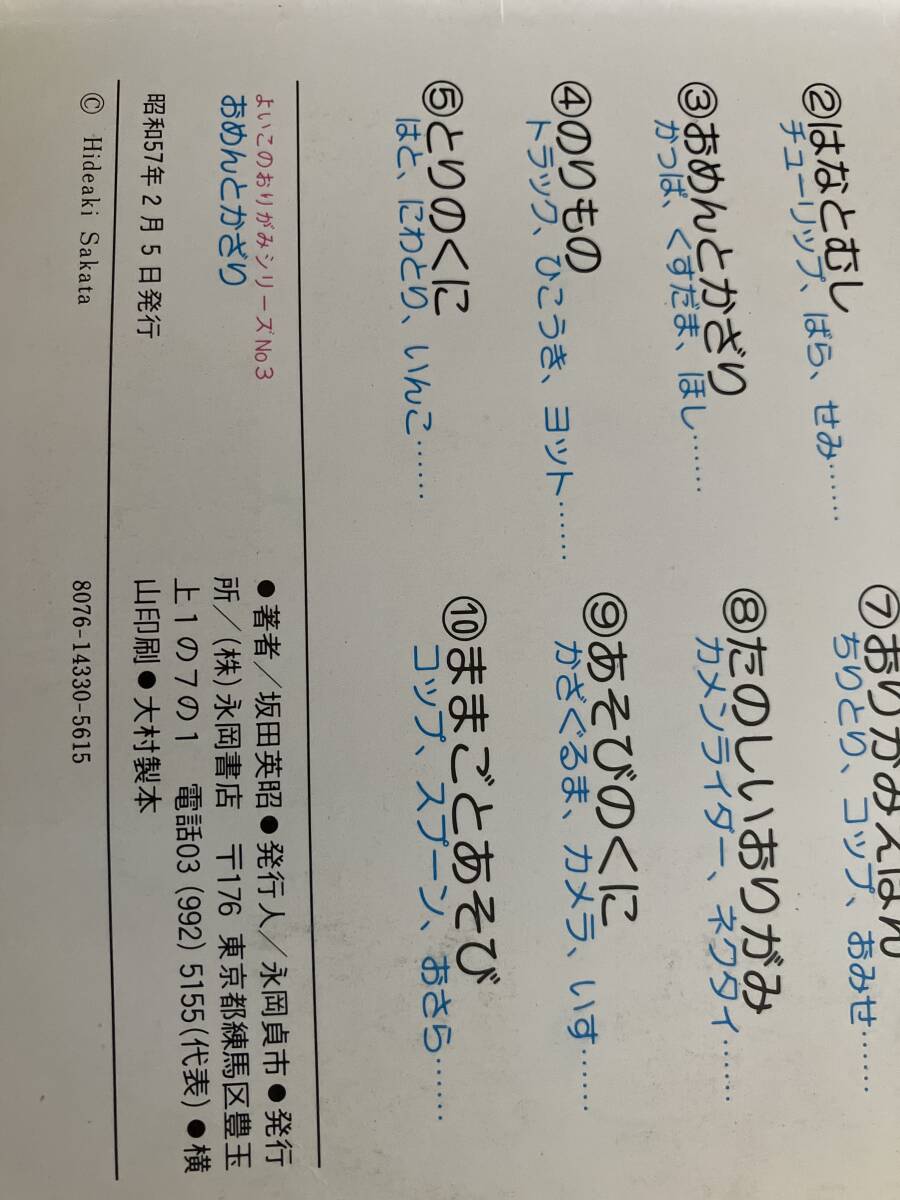 ②はなとむし
チューリップ、ばら、せみ……
③おめんとかざり
かっぱ、くすだま、ほし……
④のりもの
トラック、ひこうき、ヨット……
⑤とりのくに
はと、にわとり、いんこ……
⑦おりがみえほん
ちりとり、コップ、おみせ……
⑧たのしいおりがみ
カメンライダー、ネクタイ……
⑨あそびのくに
かざぐるま、カメラ、いす……
⑩ままごとあそび
コップ、スプーン、おさら……
よいこのおりがみシリーズNo3
おめんとかざり
昭和57年2月5日発行
●著者／坂田英昭●発行人／永岡貞市●発行
所／(株)永岡書店 〒176 東京都練馬区豊玉
上1の7の1 電話03(992)5155(代表)●横
山印刷●大村製本
© Hideaki Sakata
8076-14330-5615